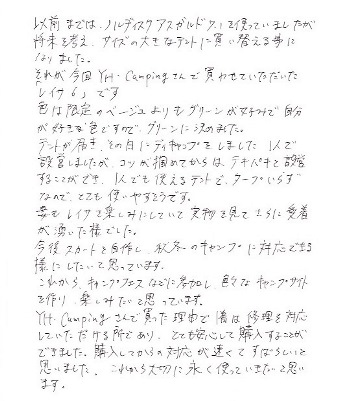 以前までは、ノルディスクアスガルドを使っていましたが
将来を考え、サイズの大きなテントに買い替える事に
なりました。
それが今回 YH-Campingさんで買わせていただいた
レイサ6」です
色は限定のベージュよりもグリーンが好みで自分
が好きな色ですので、グリーンに決めました。
テントが届き、その日にデイキャンプをしました 1人で
設営しましたが、コツが掴めてからは テキパキと設営
することができ、1人でも使えるテントで、タープいらず
なので、とても使いやすそうです。
妻もレイサで楽しみにしていて 実物を見て さらに愛着
が湧いた様でした。
今後 スカートを自作し、秋冬のキャンプに対応できる
様にしたいと思っています。
これから、キャンプフェスなどに参加し、色々なキャンプサイト
を作り、楽しみたいと思っています。
YH-Campingさんで買った理由で1番は 修理を対応
していただける所であり、とても安心して購入することが
できました。購入してからの対応が速くてすばらしいと
思いました。これから大切に永く使っていきたいと思い
ます。